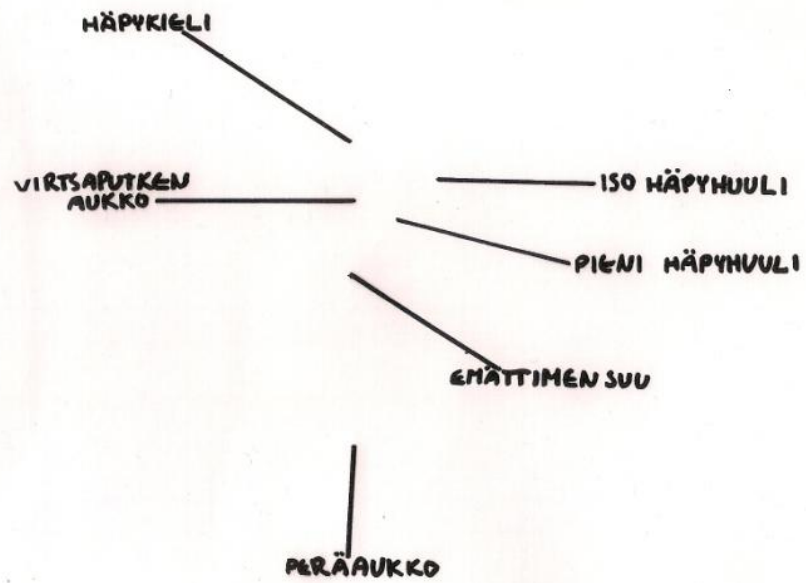 HÄPYKIELI
VIRTSAPUTKEN
AUKKO
ISO HÄPYHUULI
PIENI HÄPYHUULI
EMÄTTIMEN SUU
PERÄAUKKO